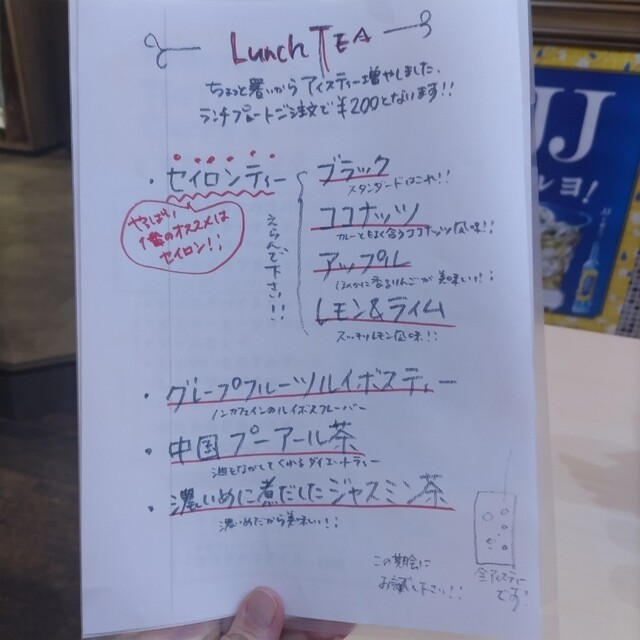 Lunch TEA
ちょっと暑いからアイスティー増やしました、
ランチプレートご注文で¥200となります!!
・セイロンティー
やっぱり
僕のオススメは
セイロン!!
えらんで下さい!!
ブラック
スタンダードはこれ!!
ココナッツ
カレーともよく合うココナッツ風味!!
アップル
ほのかに香るりんごが美味しい!!
レモン&ライム
スッキリレモン風味!!
・グレープフルーツルイボスティー
ノンカフェインのルイボスフレーバー
・中国プーアール茶
油をながしてくれるダイエットティー
・濃いめに煮だしたジャスミン茶
濃いめだから美味しい!!
この機会に
お試し下さい!!
全アイスティー
です!
JJ
ルヨ!